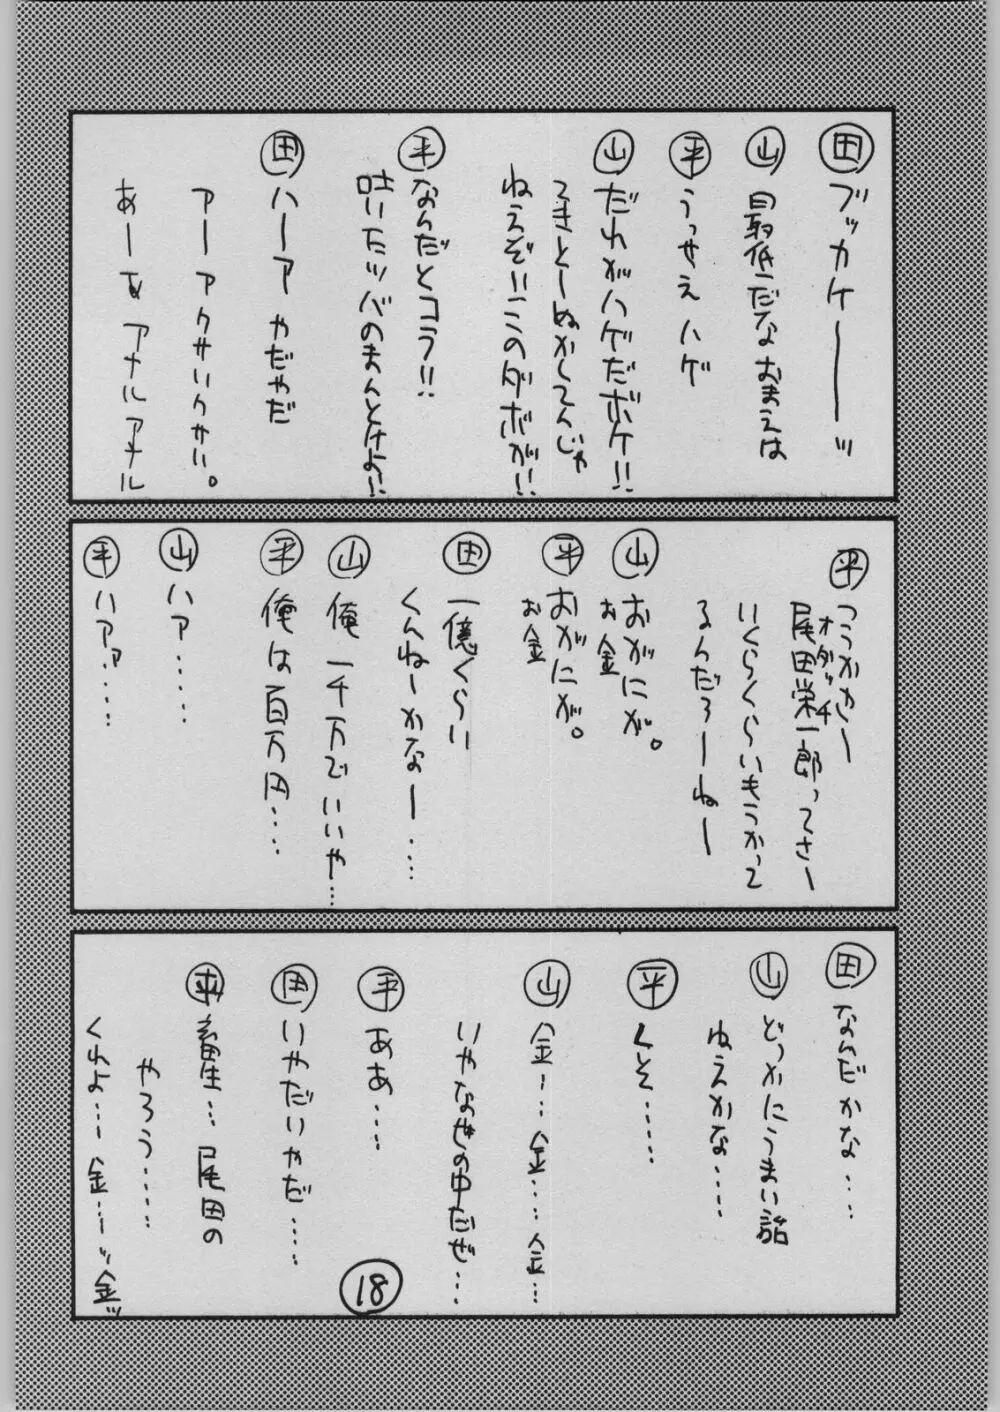 田 ブッカケーーーッ
山 最低だなおまえは
平 うっせえハゲ
山 だれがハゲだボケ!!
てきとーぬかしてんじゃ
ねえぞいこのダボが!!
平 なんだとコラ!!
吐いたツバのまんとけよ!!
田 ハーア やだやだ
アー アクサいクサい。
あーあ アナルアナル
平 つうかさー
尾田栄一郎ってさー
オダッチ
いくらくらいもうかって
るんだろーねー
山 おがにが。
お金
平 おがにが。
お金
田 一億くらい
くんねーかなー……
山 俺 一千万でいいや…
平 俺は百万円……
山 ハア……
平 ハアァ……
田 なんだかな……
山 どっかにうまい話
ねえかな……
平 くそ……
山 金… 金… 金…
いやなぜの中だぜ…
平 ああ…
田 いやだいやだ……
平 畜生… 尾田の
やろう……
くれよ… 金…ッ金ッ
18